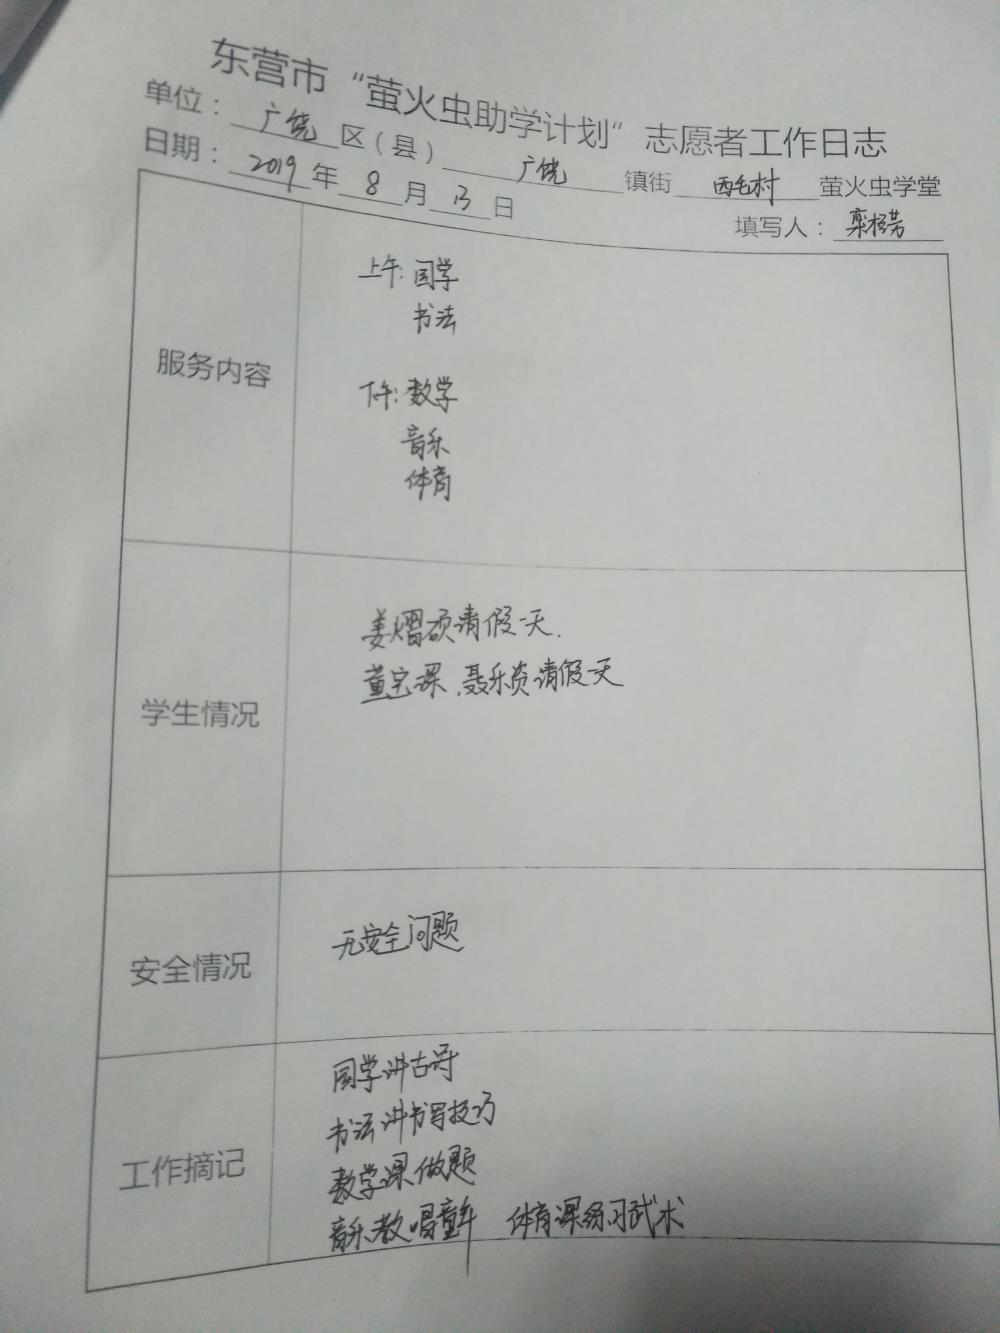 东营市“萤火虫助学计划”志愿者工作日志
单位：广饶区（县）广饶镇街西毛村萤火虫学堂
日期：2019年8月13日
填写人：栾杨芳
服务内容
上午：国学
书法
下午：数学
音乐
体育
学生情况
姜熠硕请假一天.
董宝课、聂乐资请假一天
安全情况
无安全问题
工作摘记
国学讲古诗
书法讲书写技巧
数学课做题
音乐教唱童年 体育课练习武术